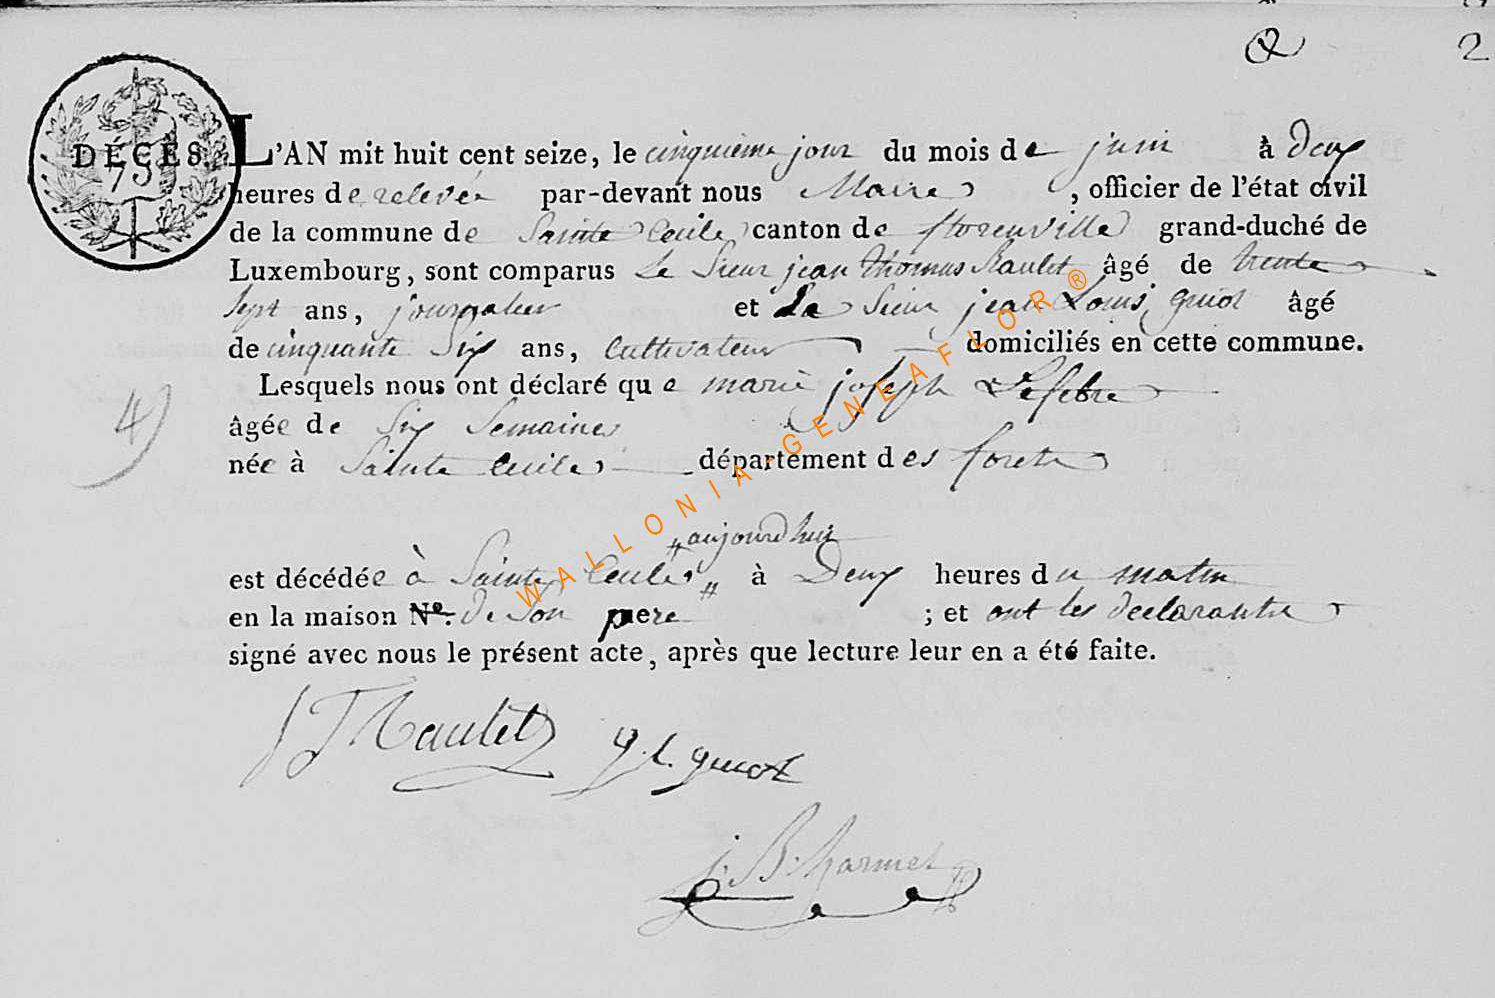 2 2
DÉCÈS
75
L'AN mit huit cent seize, le cinquieme jour du mois de juin à Deux
heures de relevée par-devant nous Maire, officier de l'état civil
de la commune de Sainte Cecile canton de florenville grand-duché de
Luxembourg, sont comparus Le Sieur jean thomas Raulet âgé de trente
sept ans, journalier et Le Sieur jean Louis guiot âgé
de cinquante Six ans, Cultivateur domiciliés en cette commune.
Lesquels nous ont déclaré que marie joseph Lefebre
âgée de Six Semaines
née à Sainte Cecile département des forets
4)
# aujourdhui
est décédée à Sainte Cecile # à Deux heures du matin
en la maison N.º de Son pere ; et ont les declarants
signé avec nous le présent acte, après que lecture leur en a été faite.
J T Raulet g. l. guiot
j. B. harmel
WALLONIA-GENEAFLOR®